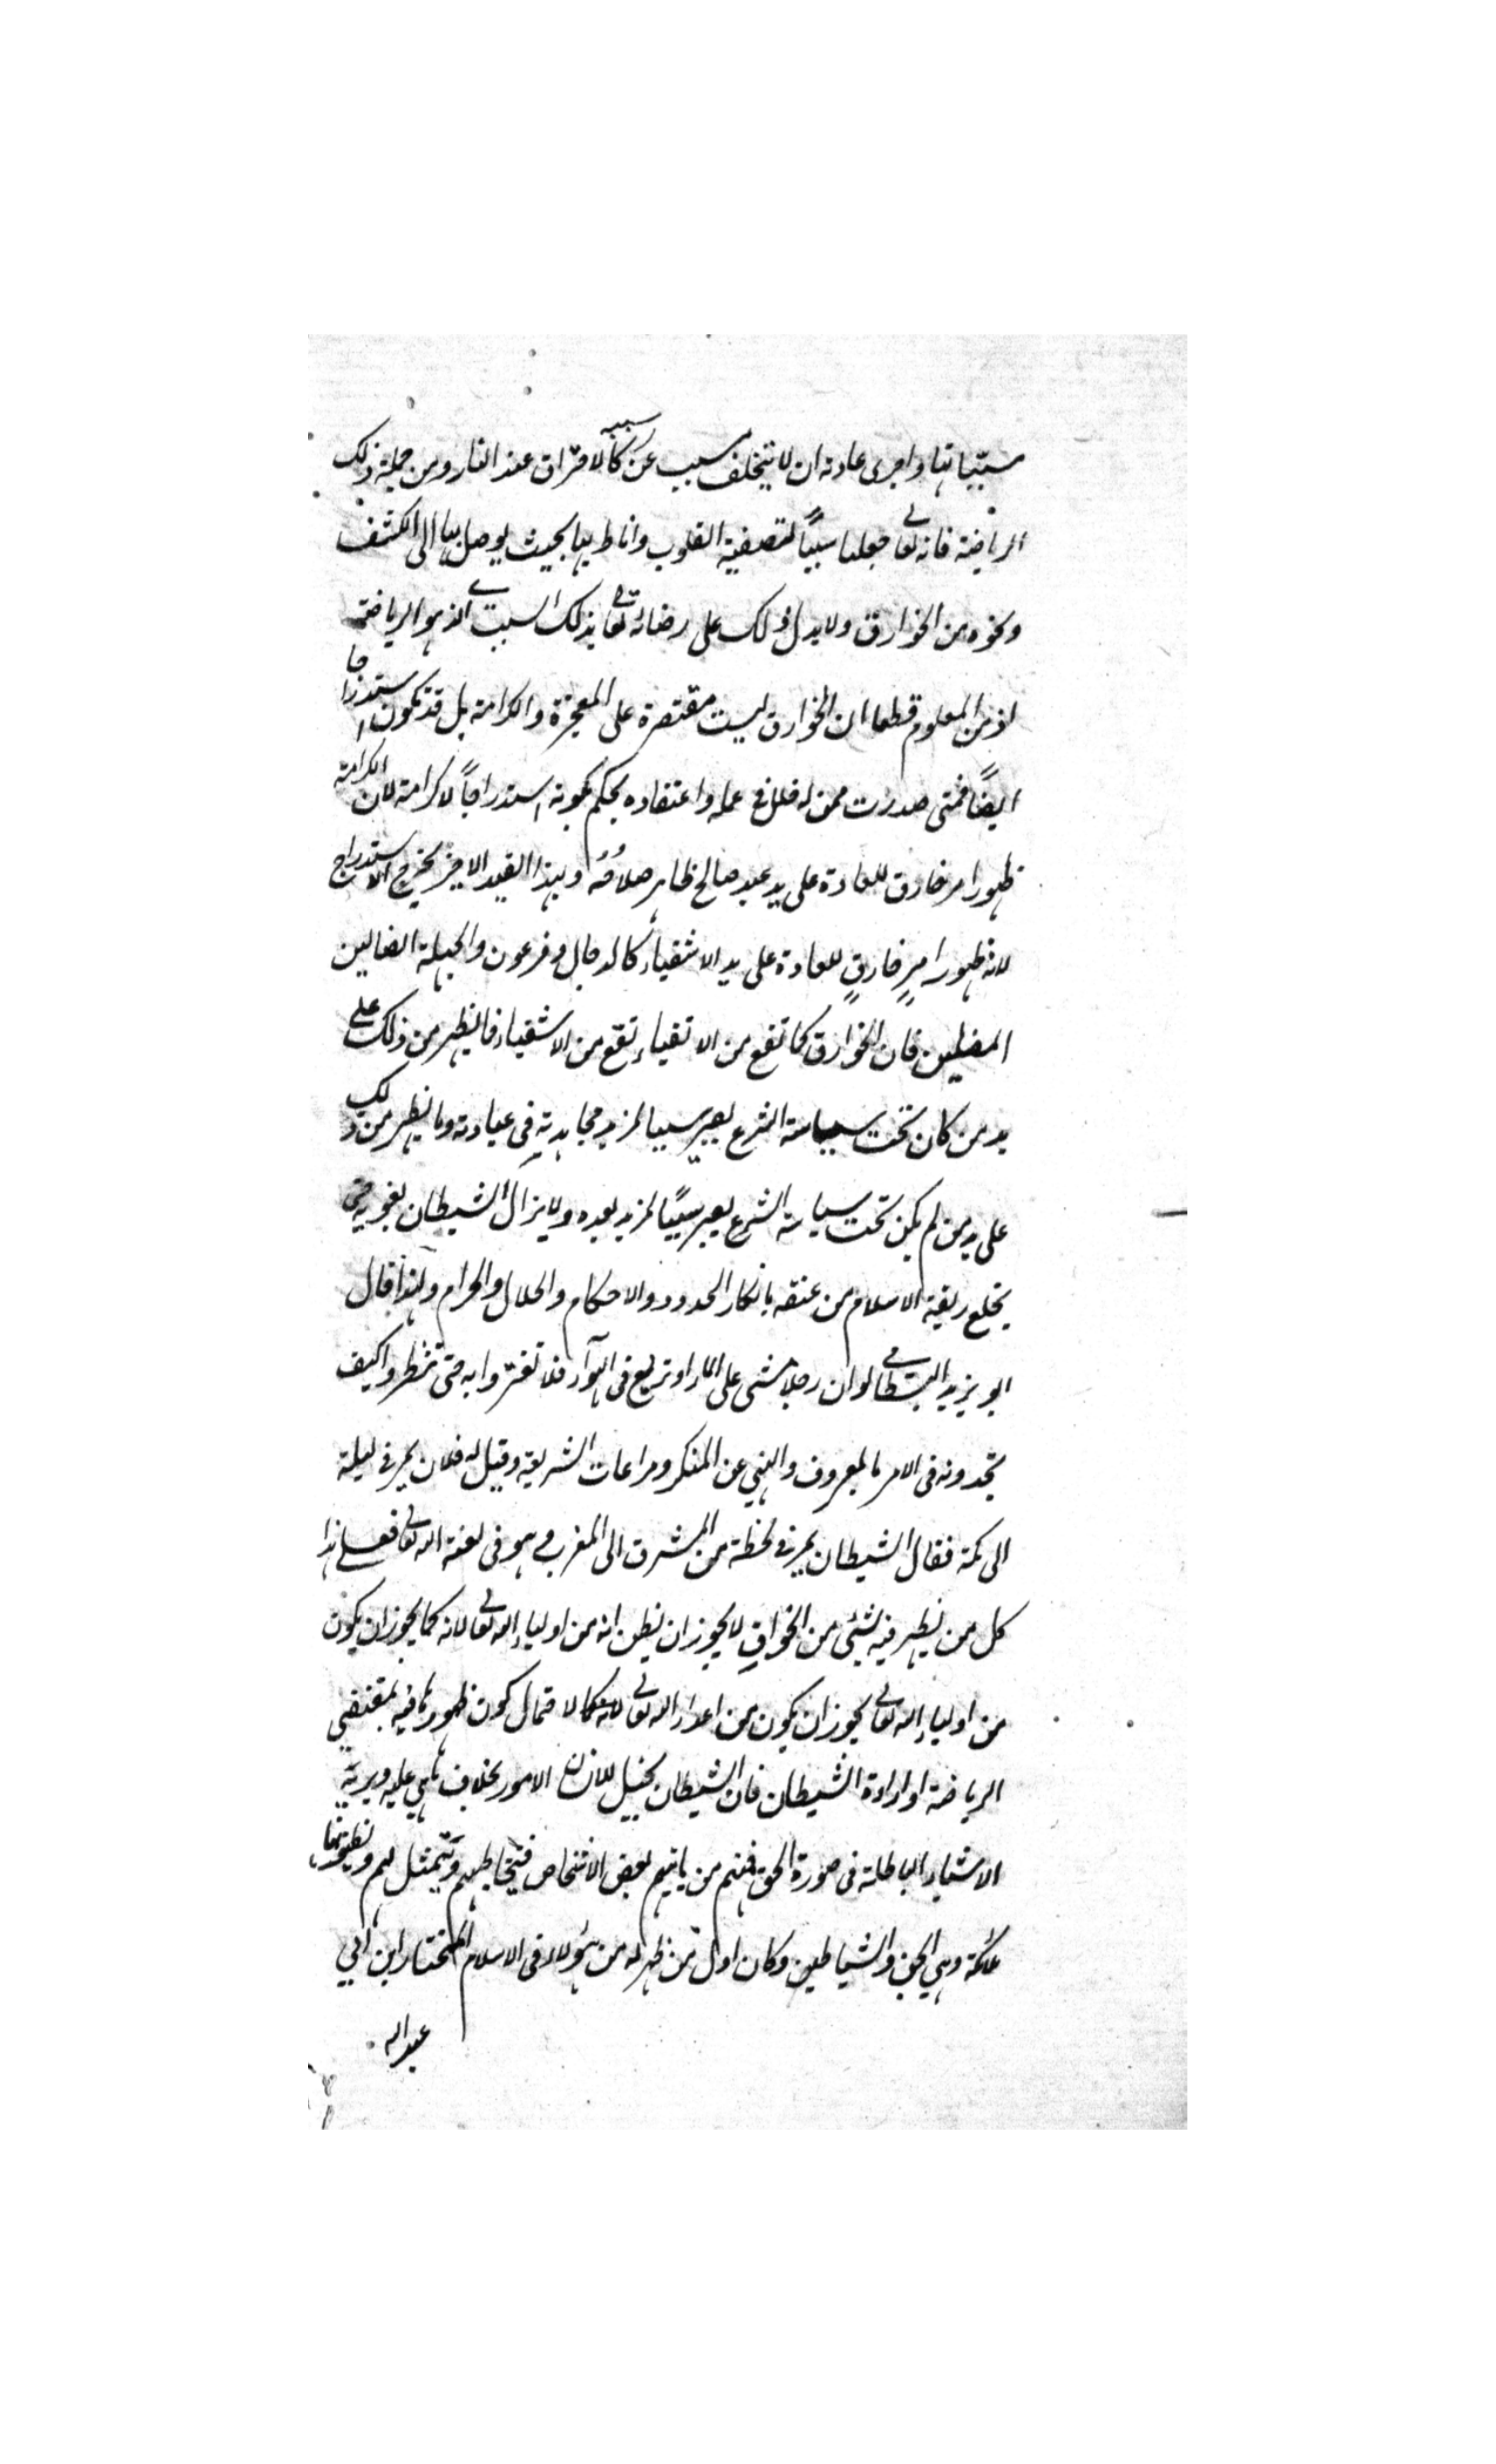 مسبباتها واجرى عادته ان لا يتخلف سبب عن سببه كالاحتراق عند النار ومن جملة ذلك
الرياضة فانه تعالى جعلها سبباً لتصفية القلوب واناط بها بحيث يوصل بها الى الكشف
ونحوه من الخوارق ولا يدل ذلك على رضائه تعالى بذلك السبب الذي هو الرياضة
اذ من المعلوم قطعا ان الخوارق ليست مقتصرة على المعجزة والكرامة بل قد تكون استدراجا
ايضاً فمتى صدرت ممن له خلل في عمله واعتقاده يحكم بكونه استدراجاً لا كرامة لان الكرامة
ظهور امر خارق للعادة على يد عبد صالح ظاهر صلاحُه وبهذا القيد الاخير يخرج الاستدراج
لانه ظهور امرٍ خارقٍ للعادة على يد الاشقياء كالدجال وفرعون والجهلة الضالين
المضلين فان الخوارق كما تقع من الاتقياء تقع من الاشقياء فما يظهر من ذلك على
يد من كان تحت سياسة الشرع يصير سببا لمزيد مجاهدته في عبادته وما يظهر من ذلك
على يد من لم يكن تحت سياسة الشرع يصير سبباً لمزيد بعده ولا يزال الشيطان يغويه حتى
يخلع ربقة الاسلام من عنقه بانكار الحدود والاحكام والحلال والحرام ولهذا قال
ابو يزيد البسطامي لو ان رجلا مشى على الماء او تربع في الهوآء فلا تغتروا به حتى تنظروا كيف
تجدونه في الامر بالمعروف والنهي عن المنكر ومراعات الشريعة وقيل له فلان يمر في ليلة
الى مكة فقال الشيطان يمر في لحظة من المشرق الى المغرب وهو في لعنة الله تعالى فعلى هذا
كل من يظهر فيه شئي من الخوارق لا يجوز ان يظن انه من اولياء الله تعالى لانه كما يجوز ان يكون
من اولياء الله تعالى يجوز ان يكون من اعداء الله تعالى لاحتمال كون ظهور ما فيه بمقتضى
الرياضة او ارادة الشيطان فان الشيطان يخيل للانسان الامور بخلاف ما هي عليه ويريه
الاشياء الباطلة في صورة الحق فمنهم من ياتيهم بعض الاشخاص فيخاطبهم ويتمثل لهم ويظنونها
ملائكة وهي الجن والشياطين وكان اول من ظهر له من هؤلاء في الاسلام المختار ابن ابي
عبد الله